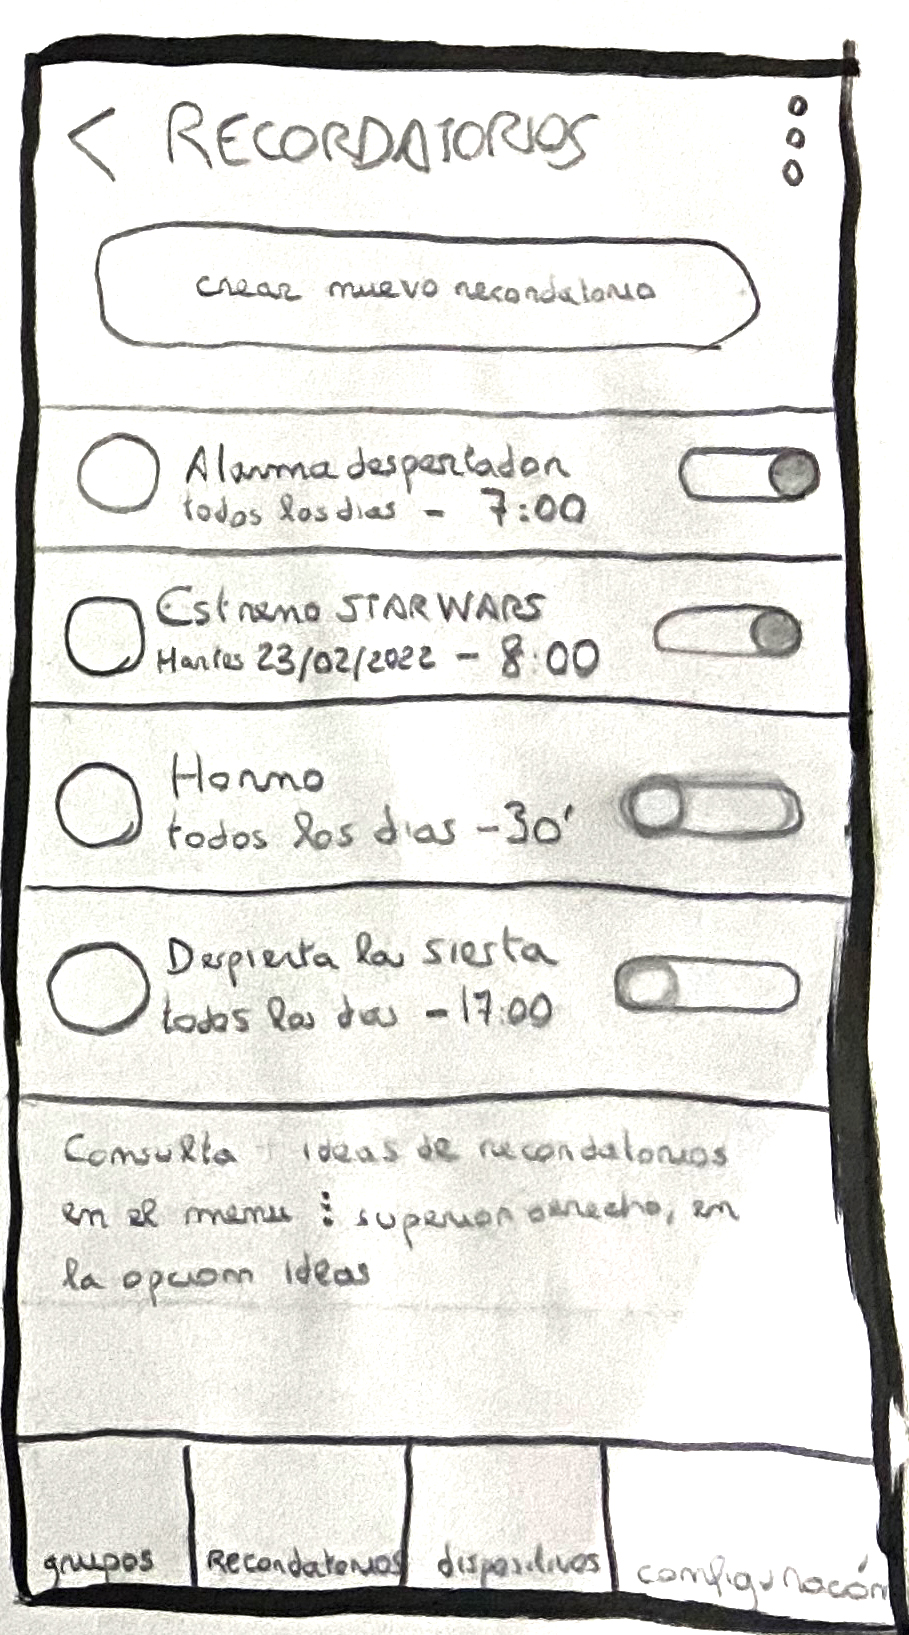 < RECORDATORIOS
crear nuevo recordatorio
Alarma despertador
todos los dias - 7:00
Estreno STAR WARS
Martes 23/02/2022 - 8:00
Horno
todos los dias - 30'
Despierta la siesta
todos los dias - 17:00
Consulta ideas de recordatorios
en el menu ⋮ superior derecho, en
la opcion ideas
grupos
Recordatorios
dispositivos
configuración